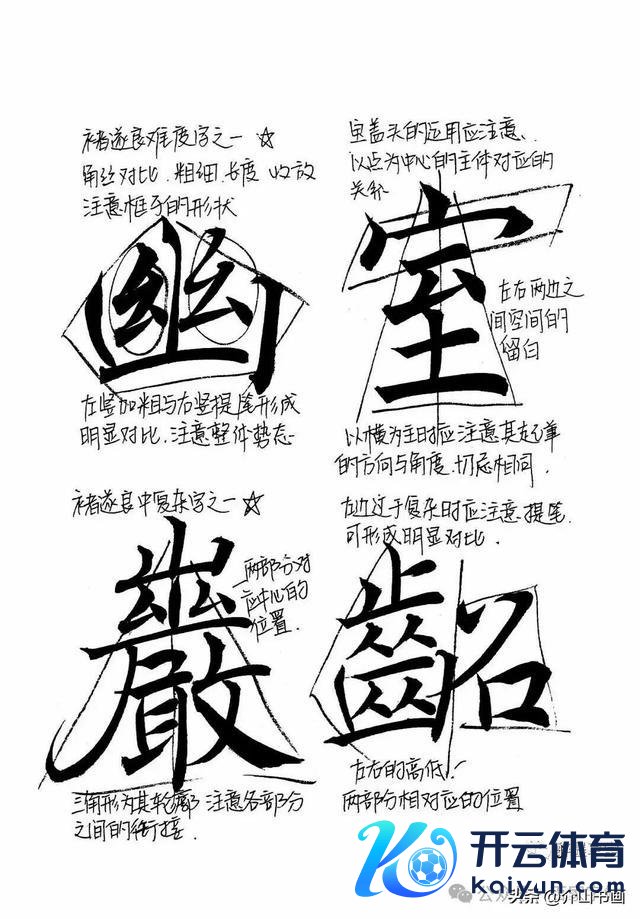 褚遂良难度字之一 ☆
角丝对比.粗细.长度 收放
注意框子的形状
幽
左竖加粗与右竖提笔形成
明显对比.注意整体势态
宝盖头的运用应注意、
以点为中心的主体对应的
关系
室
左右两边之
间空间的
留白
以横为主时应注意其起笔
的方向与角度.切忌相同.
褚遂良中复杂字之一 ☆
两部分对
应中心的
位置.
巖
三角形为其轮廓 注意各部分
之间的衔接.
左边过于复杂时应注意提笔.
可形成明显对比.
齠
左右的高低、
两部分相对应的位置
开云体育
kaiyun.com
头条@介山书画